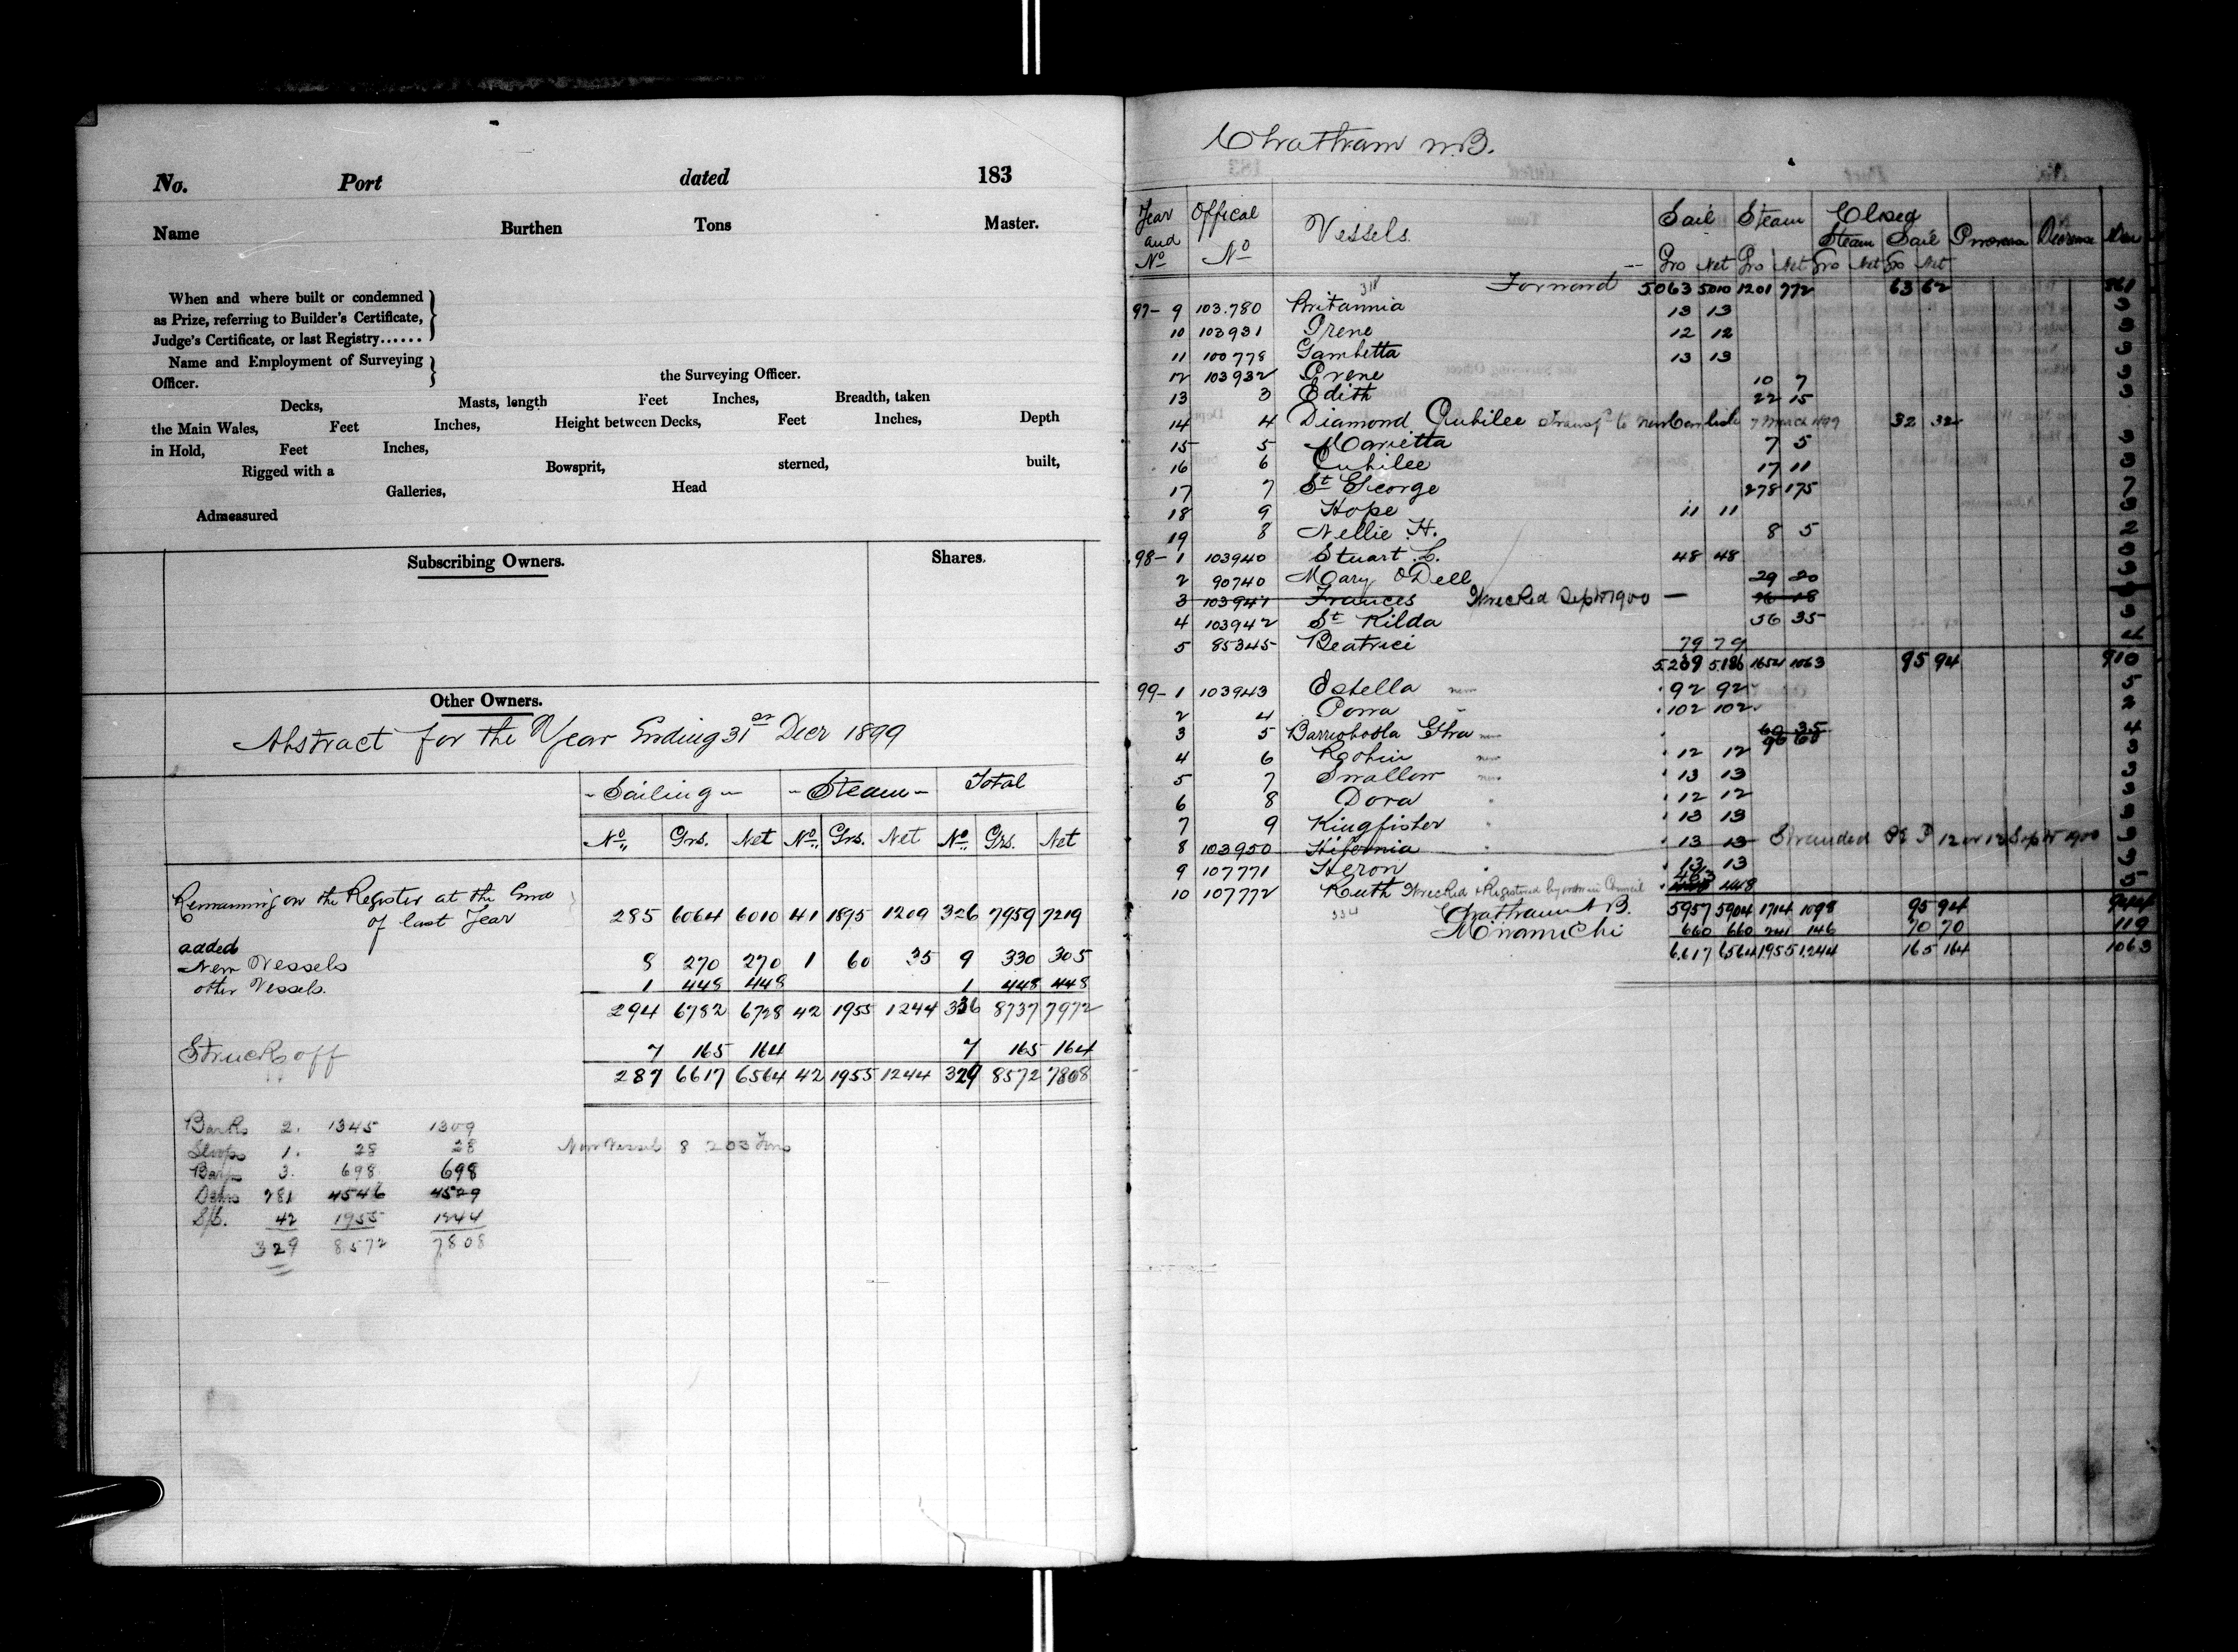 No. Port dated 183
Name Burthen Tons Master.
When and where built or condemned
as Prize, referring to Builder's Certificate,
Judge's Certificate, or last Registry......
Name and Employment of Surveying
Officer. the Surveying Officer.
Decks, Masts, length Feet Inches, Breadth, taken
the Main Wales, Feet Inches, Height between Decks, Feet Inches, Depth
in Hold, Feet Inches,
Rigged with a Bowsprit, sterned, built,
Galleries, Head
Admeasured
Subscribing Owners. Shares.
Other Owners.
Abstract for the Year Ending 31st Decr 1899
Sailing Steam Total
No. Grs. Net No. Grs. Net No. Grs. Net
Remaining on the Register at the End
of last Year 285 6064 6010 41 1895 1209 326 7959 7219
added
New Vessels 8 270 270 1 60 35 9 330 305
other Vessels. 1 448 448 1 448 448
294 6782 6728 42 1955 1244 336 8737 7972
Struck off 7 165 164 7 165 164
287 6617 6564 42 1955 1244 329 8572 7808
Barks 2. 1345 1309
Sloops 1. 28 28
3. 698 698
281 4546 4529
42 1955 1244
329 8572 7808
New Vessels 8 203 Tons
Chatham N.B.
Year and No Offical No Vessels. Sail Steam Closed Increase Decrease Men
Steam Sail
Gro Net Gro Net Gro Net Gro Net
318 Forward 5063 5010 1201 772 63 62 861
97- 9 103.780 Britannia 13 13 3
10 103931 Irene 12 12 3
11 100778 Gambetta 13 13 3
12 103932 Irene 10 7 3
13 3 Edith 22 15 3
14 4 Diamond Jubilee Transfd to New Carlisle 7 March 1899 32 32
15 5 Marietta 7 5 3
16 6 Jubilee 17 11 3
17 7 St George 278 175 7
18 9 Hope 11 11 3
19 8 Nellie H. 8 5 2
98- 1 103940 Stuart L. 48 48 3
2 90740 Mary ODell 29 20 3
3 103941 Frances Wrecked Sept 1900 — 26 18
4 103942 St Kilda 56 35 3
5 85345 Beatrice 79 79 4
5269 5186 1654 1063 95 94 910
99- 1 103943 Estella new 92 92 5
2 4 102 102 2
3 5 Barrioboola Ghra new 60 35 4
4 6 Robin new 12 12 3
5 7 Swallow new 13 13 3
6 8 Dora " 12 12 3
7 9 Kingfisher " 13 13 3
8 103950 Hifornia " 13 13 Stranded P E I 12 or 13 Sept 1900 3
9 107771 Heron " 13 13 3
10 107772 Ruth Wrecked & Registered by order in Council 463 448
334 Chatham N B. 5957 5904 1714 1098 95 94 944
Miramichi 660 660 241 146 70 70 119
6617 6564 1955 1244 165 164 1063